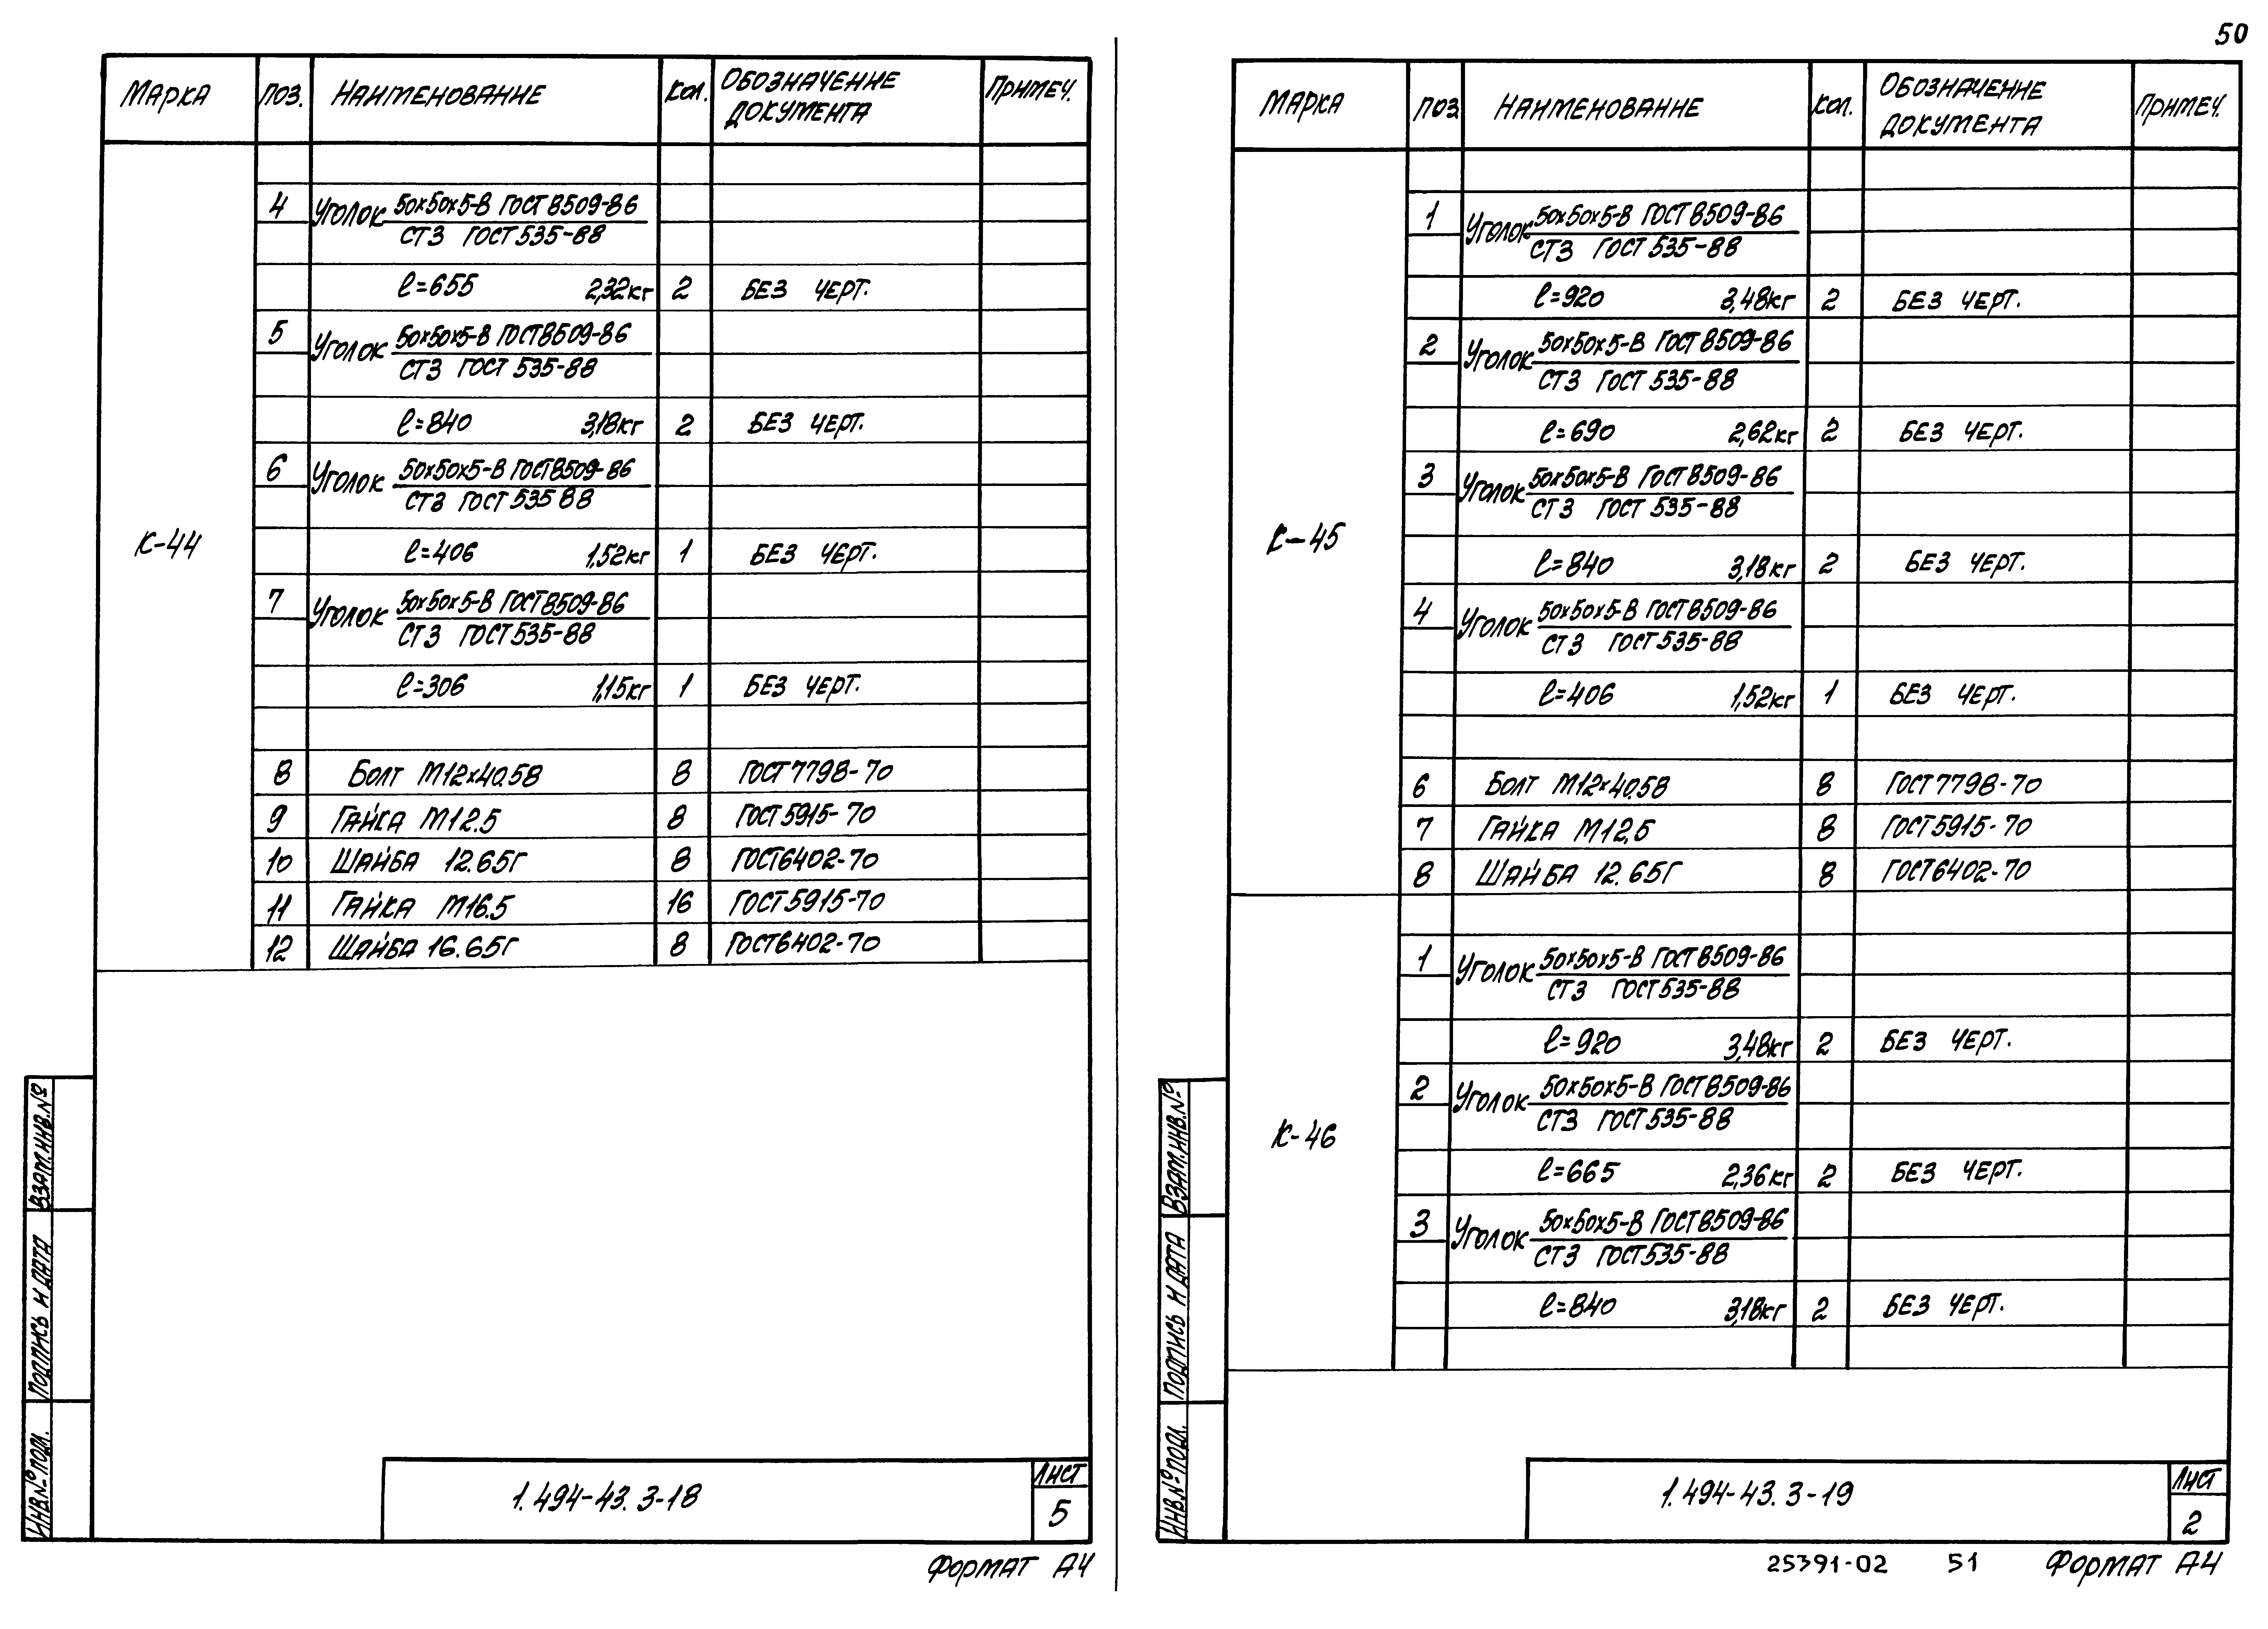 50
МАРКА ПОЗ. НАИМЕНОВАНИЕ КОЛ. ОБОЗНАЧЕНИЕ ДОКУМЕНТА ПРИМЕЧ.
К-44
4 УГОЛОК 50х50х5-В ГОСТ 8509-86
СТ3 ГОСТ 535-88
ℓ=655 2,32кг 2 БЕЗ ЧЕРТ.
5 УГОЛОК 50х50х5-В ГОСТ 8509-86
СТ3 ГОСТ 535-88
ℓ=840 3,18кг 2 БЕЗ ЧЕРТ.
6 УГОЛОК 50х50х5-В ГОСТ 8509-86
СТ3 ГОСТ 535 88
ℓ=406 1,52кг 1 БЕЗ ЧЕРТ.
7 УГОЛОК 50х50х5-В ГОСТ 8509-86
СТ3 ГОСТ 535-88
ℓ=306 1,15кг 1 БЕЗ ЧЕРТ.
8 БОЛТ М12х40.58 8 ГОСТ 7798-70
9 ГАЙКА М12.5 8 ГОСТ 5915-70
10 ШАЙБА 12.65Г 8 ГОСТ 6402-70
11 ГАЙКА М16.5 16 ГОСТ 5915-70
12 ШАЙБА 16.65Г 8 ГОСТ 6402-70
ВЗАМ.ИНВ.№
ПОДПИСЬ И ДАТА
ИНВ.№ ПОДЛ.
1.494-43.3-18
ЛИСТ
5
ФОРМАТ А4
МАРКА ПОЗ НАИМЕНОВАНИЕ КОЛ. ОБОЗНАЧЕНИЕ ДОКУМЕНТА ПРИМЕЧ.
К-45
1 УГОЛОК 50х50х5-В ГОСТ 8509-86
СТ3 ГОСТ 535-88
ℓ=920 3,48кг 2 БЕЗ ЧЕРТ.
2 УГОЛОК 50х50х5-В ГОСТ 8509-86
СТ3 ГОСТ 535-88
ℓ=690 2,62кг 2 БЕЗ ЧЕРТ.
3 УГОЛОК 50х50х5-В ГОСТ 8509-86
СТ3 ГОСТ 535-88
ℓ=840 3,18кг 2 БЕЗ ЧЕРТ.
4 УГОЛОК 50х50х5-В ГОСТ 8509-86
СТ3 ГОСТ 535-88
ℓ=406 1,52кг 1 БЕЗ ЧЕРТ.
6 БОЛТ М12х40.58 8 ГОСТ 7798-70
7 ГАЙКА М12,5 8 ГОСТ 5915-70
8 ШАЙБА 12.65Г 8 ГОСТ 6402-70
К-46
1 УГОЛОК 50х50х5-В ГОСТ 8509-86
СТ3 ГОСТ 535-88
ℓ=920 3,48кг 2 БЕЗ ЧЕРТ.
2 УГОЛОК 50х50х5-В ГОСТ 8509-86
СТ3 ГОСТ 535-88
ℓ=665 2,36кг 2 БЕЗ ЧЕРТ.
3 УГОЛОК 50х50х5-В ГОСТ 8509-86
СТ3 ГОСТ 535-88
ℓ=840 3,18кг 2 БЕЗ ЧЕРТ.
ВЗАМ.ИНВ.№
ПОДПИСЬ И ДАТА
ИНВ.№ ПОДЛ.
1.494-43.3-19
ЛИСТ
2
25391-02 51 ФОРМАТ А4